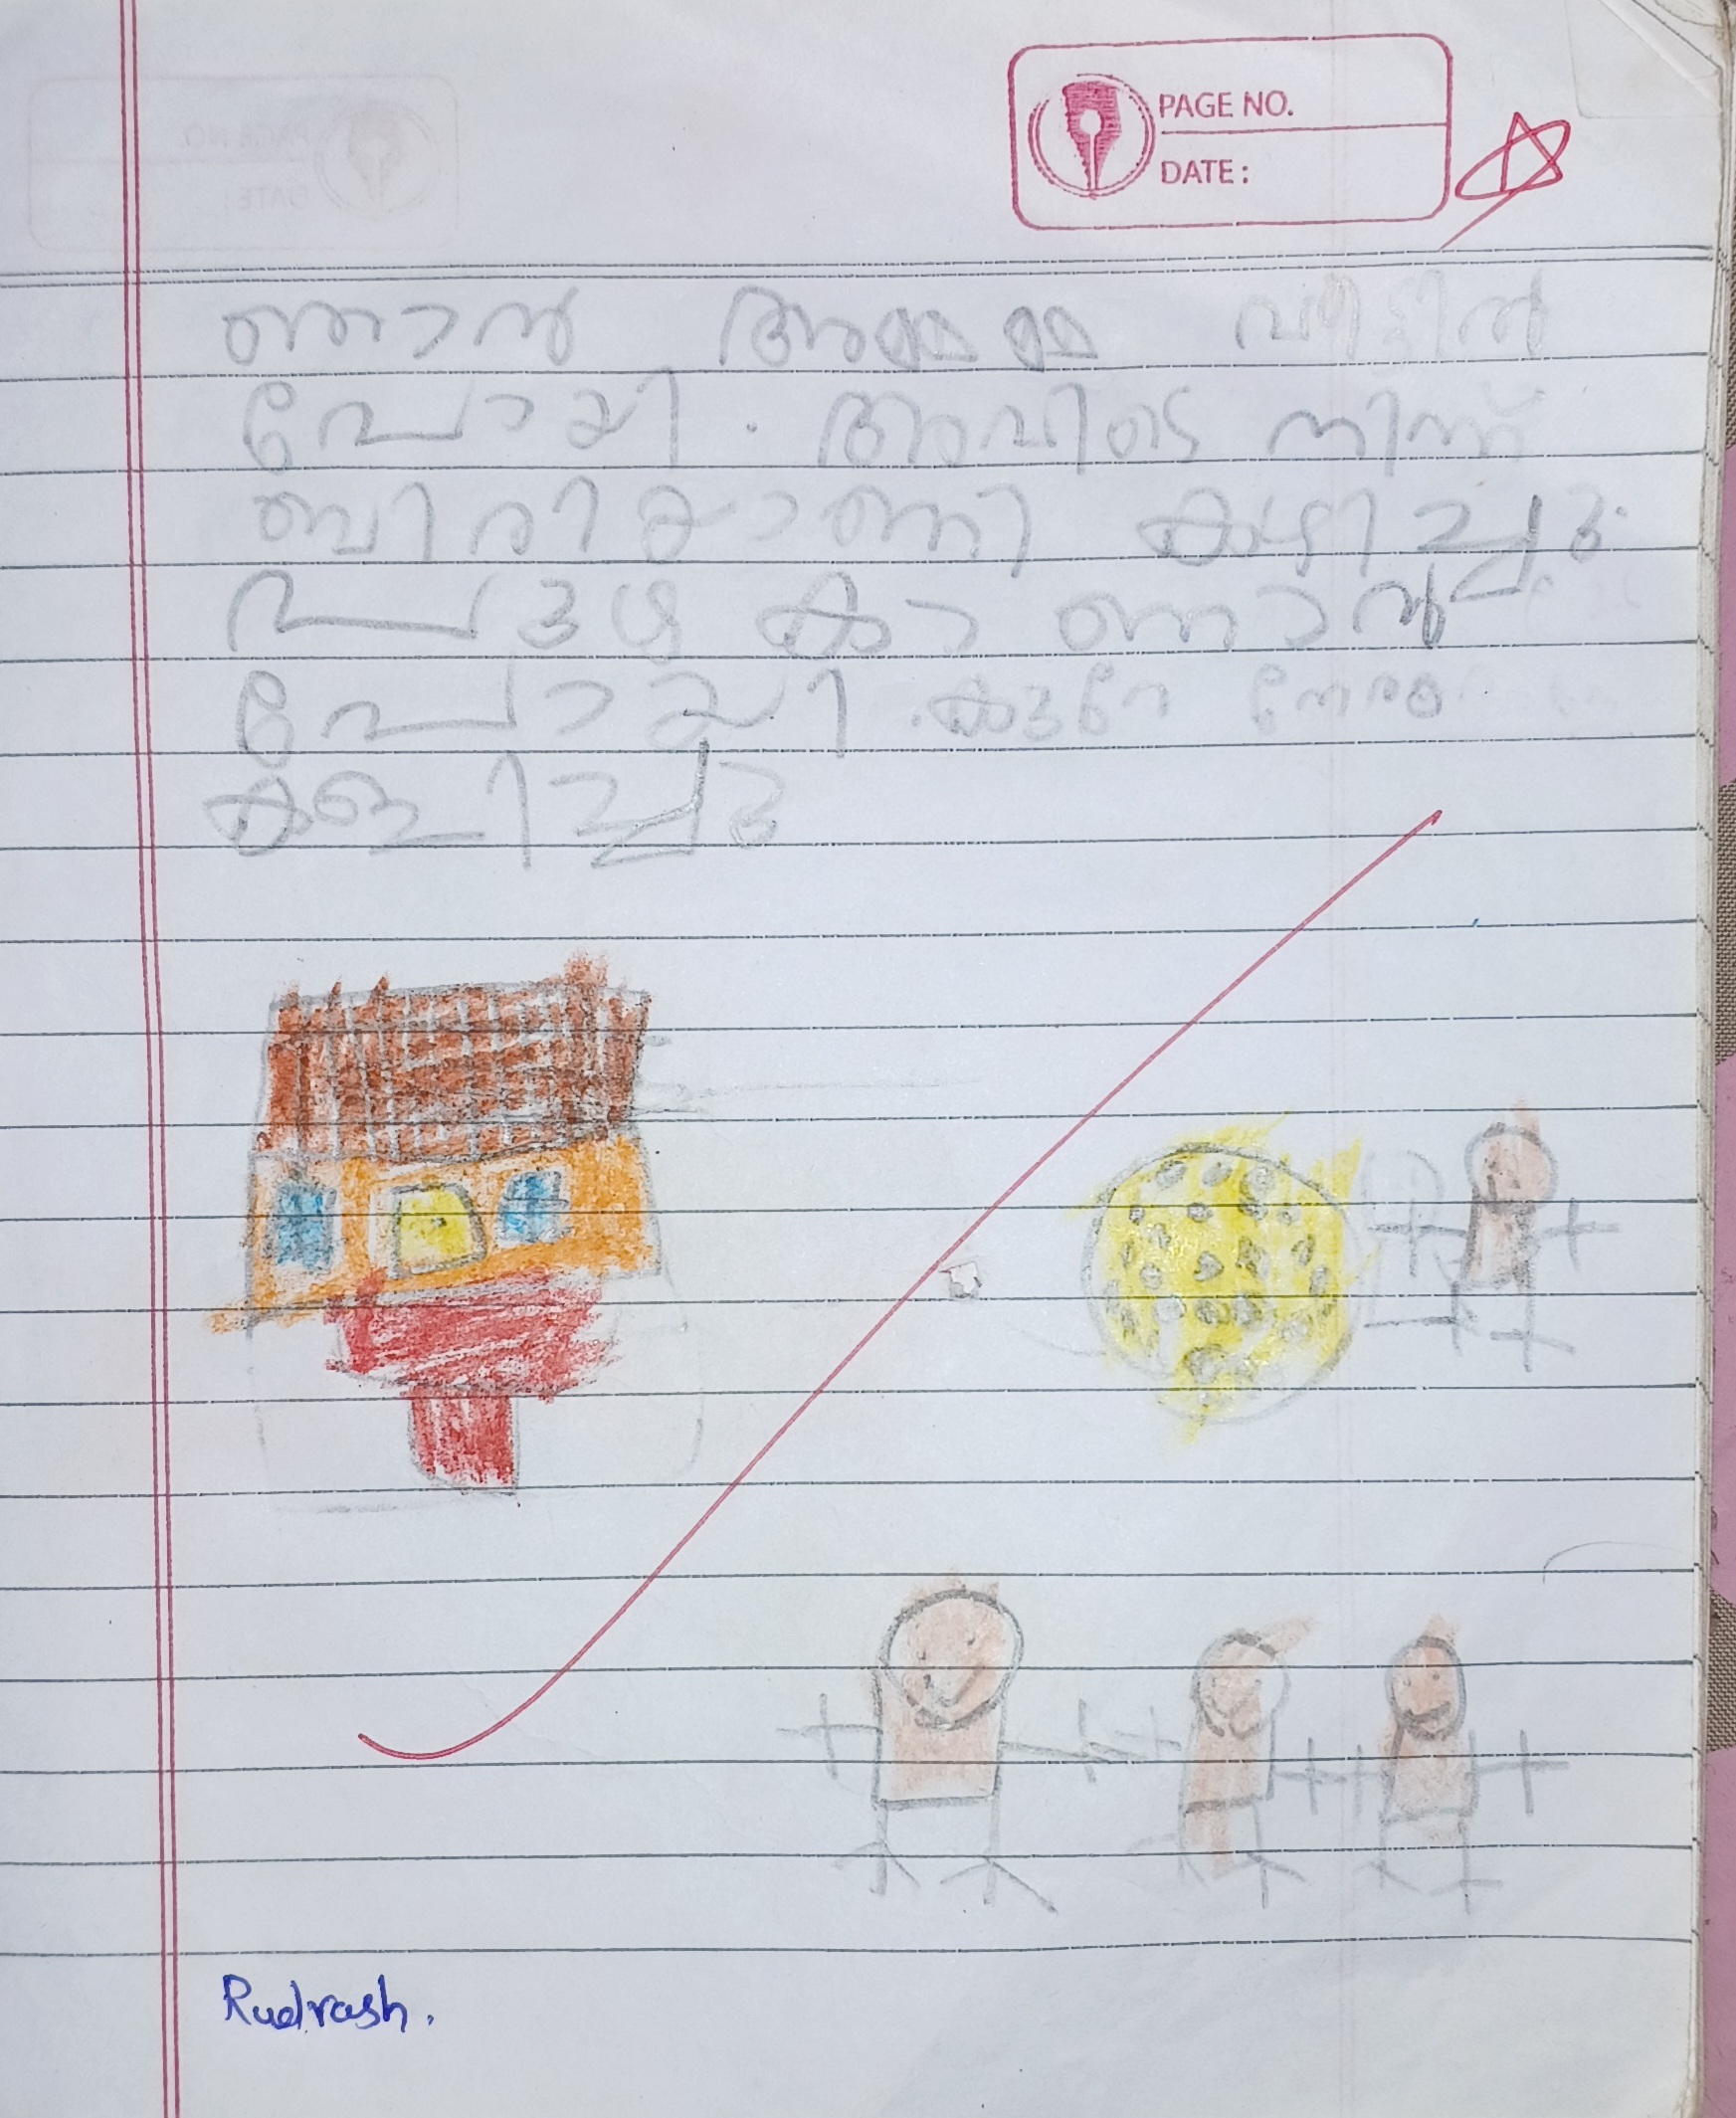 PAGE NO.
DATE:
ഞാൻ അമ്മമ്മ വീട്ടിൽ
പോയി. അവിടെ നിന്ന്
ബിരിയാണി കഴിച്ചു.
പുഴ കാണാൻ
പോയി. കുറേ നേരം
കളിച്ചു
Rudrash.